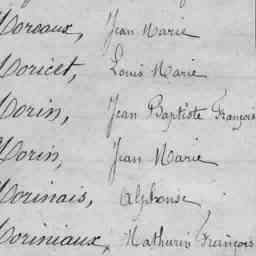 Moreaux, Jean Marie
Moricet, Louis Marie
Morin, Jean Baptiste François
Morin, Jean Marie
Morinais, Alphonse
Moriniaux, Mathurin François